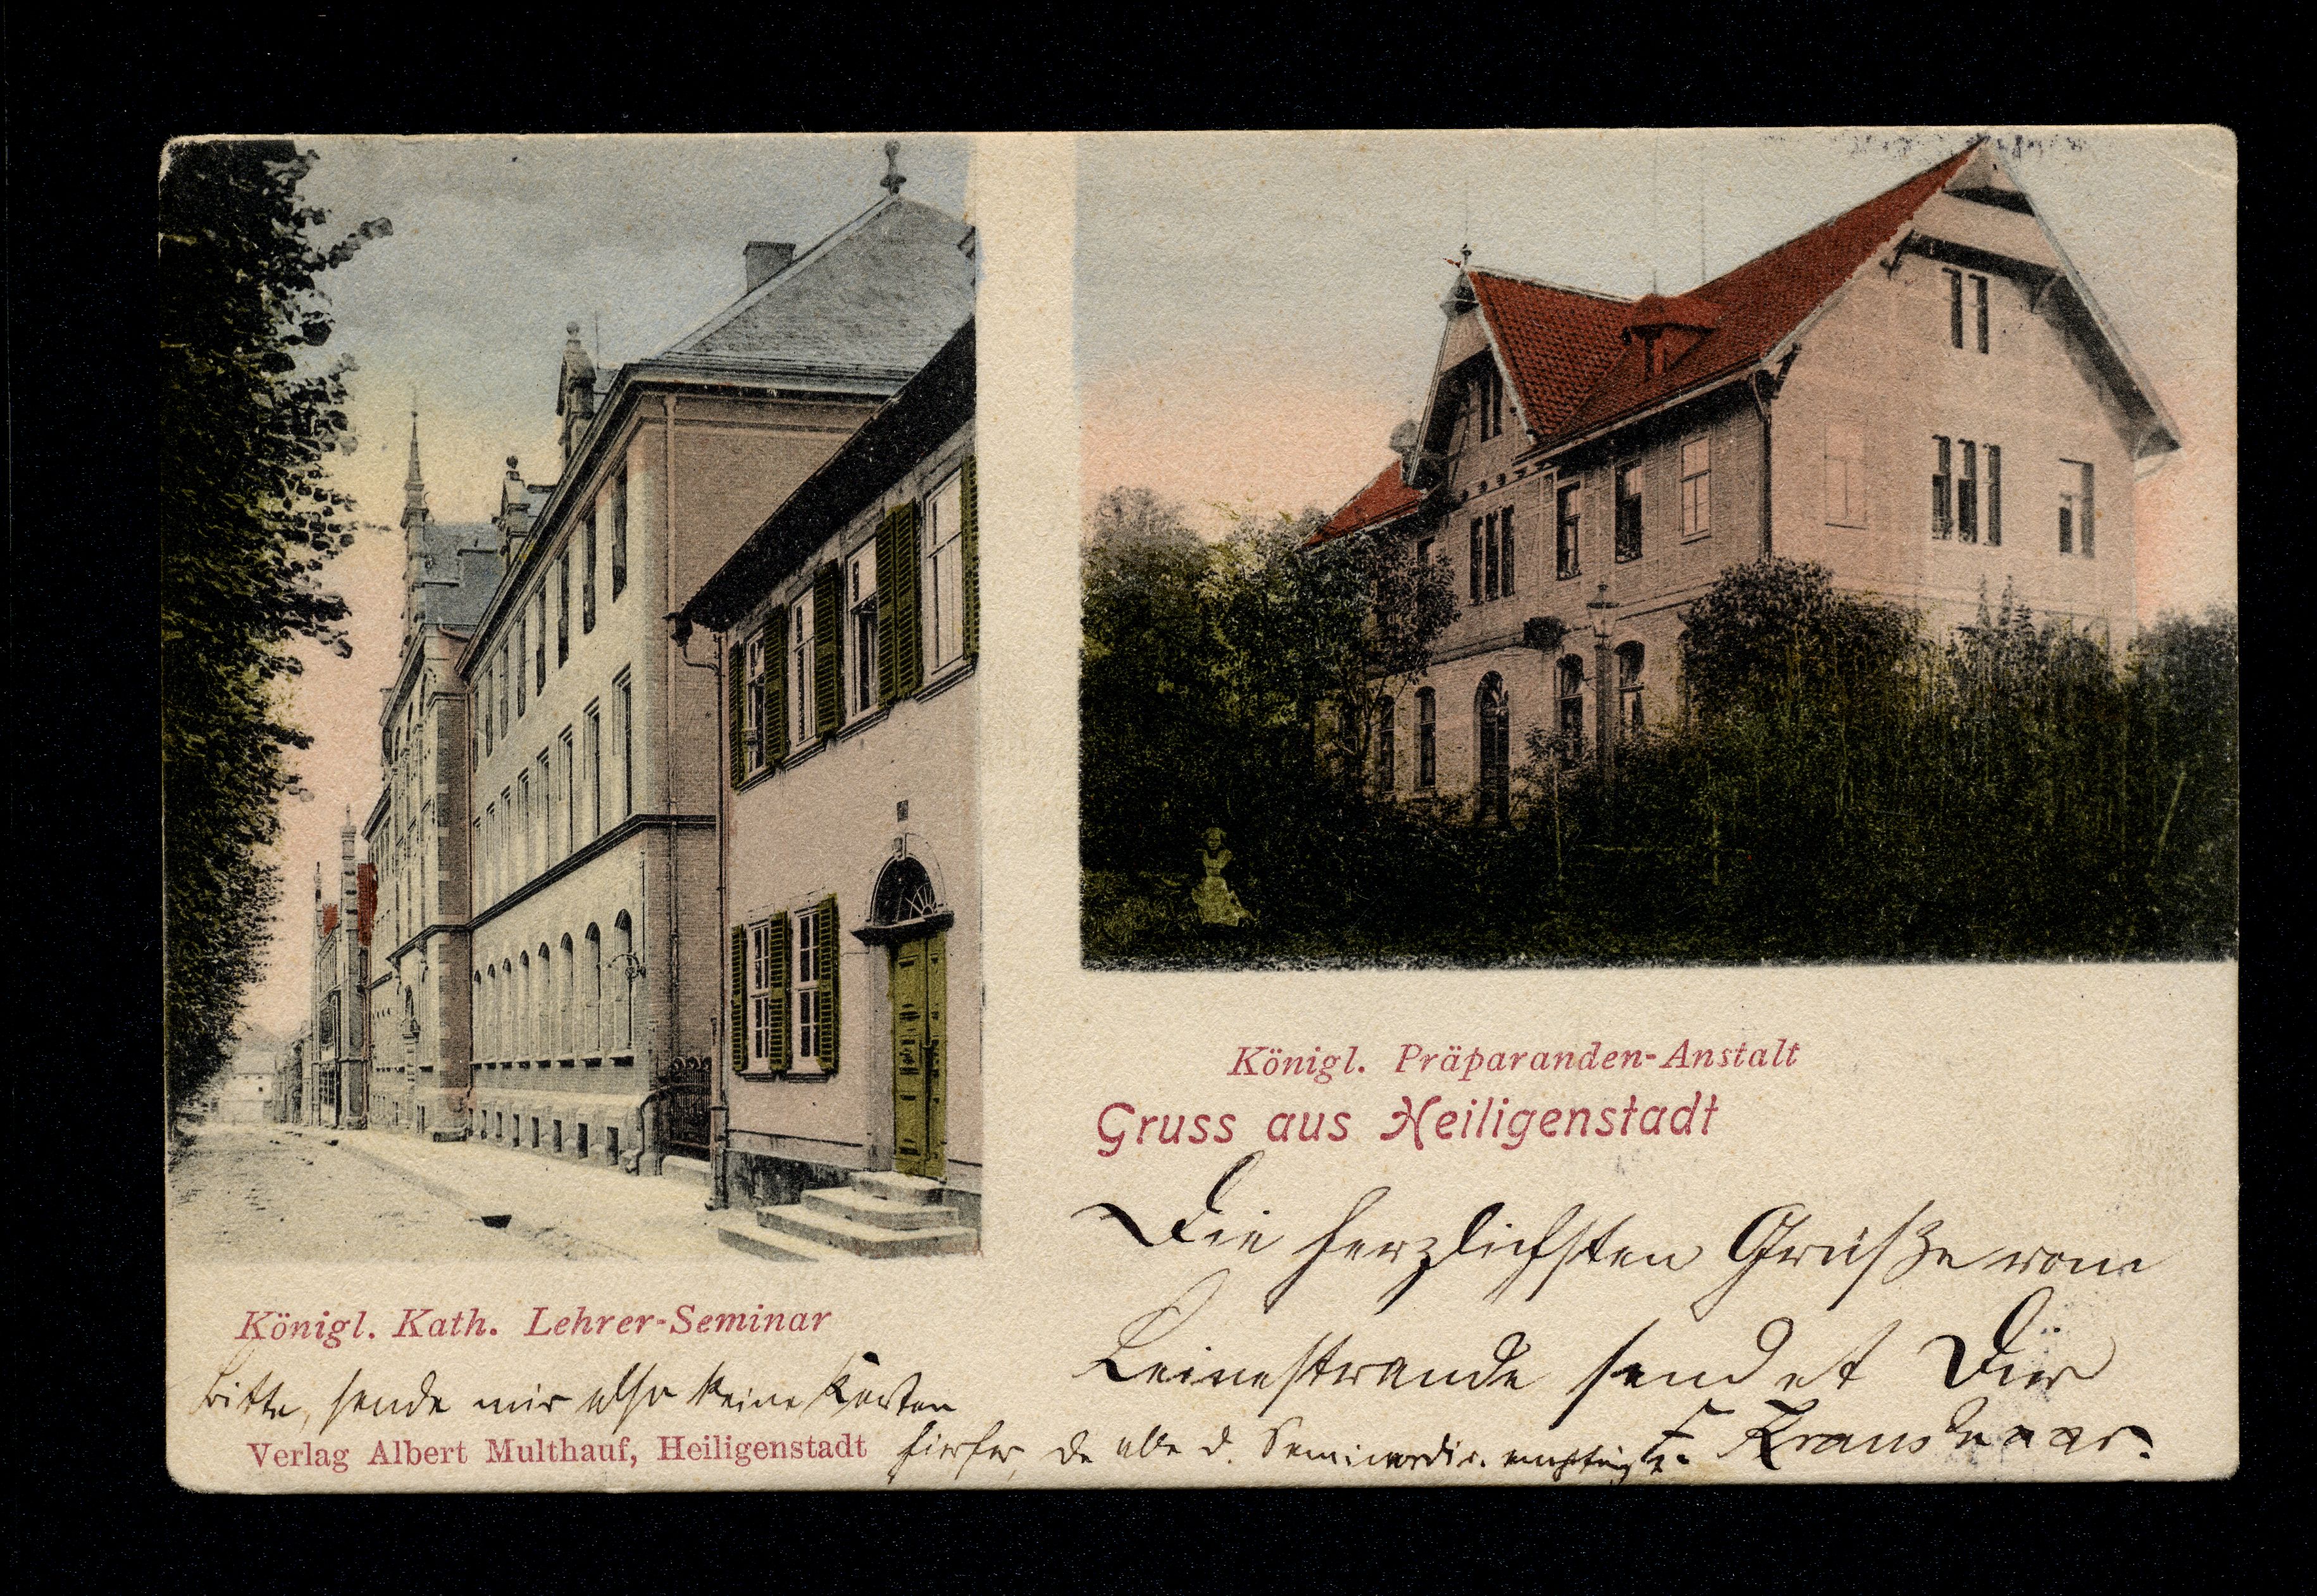 Königl. Präparanden-Anstalt
Gruss aus Heiligenstadt
Die herzlichsten Grüße vom
Leinestrande sendet Dir
F. Kraushaar.
Königl. Kath. Lehrer-Seminar
Bitte, sende mir also keine Karten
hierher, da alle d. Seminardir. empfängt.
Verlag Albert Multhauf, Heiligenstadt